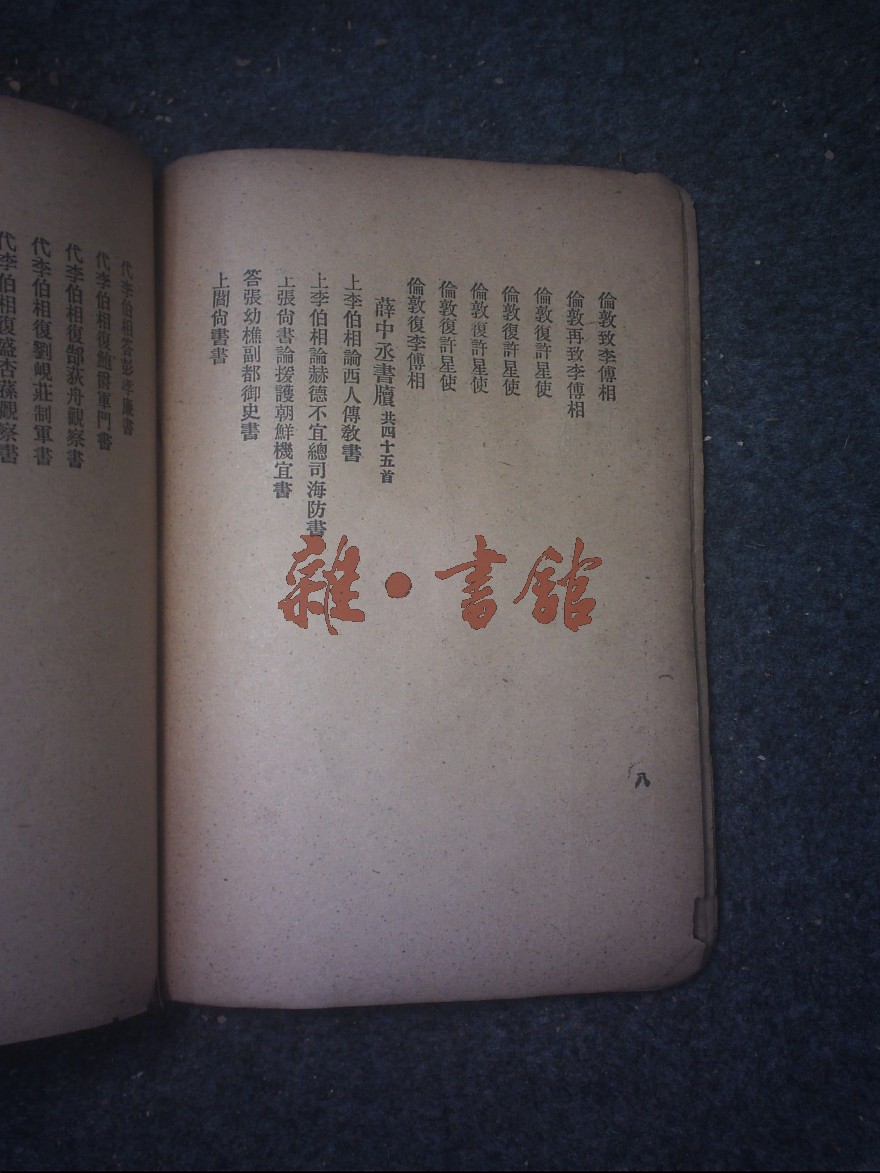 倫敦致李傅相
倫敦再致李傅相
倫敦復許星使
倫敦復許星使
倫敦復許星使
倫敦復許星使
倫敦復李傅相
薛中丞書牘 共四十五首
上李伯相論西人傳敎書
上李伯相論赫德不宜總司海防書
上張尙書論援護朝鮮機宜書
答張幼樵副都御史書
上閻尙書書
八
代李伯相答彭孝廉書
代李伯相復鮑爵軍門書
代李伯相復郜荻舟觀察書
代李伯相復劉峴莊制軍書
代李伯相復盛杏蓀觀察書
雜·書館